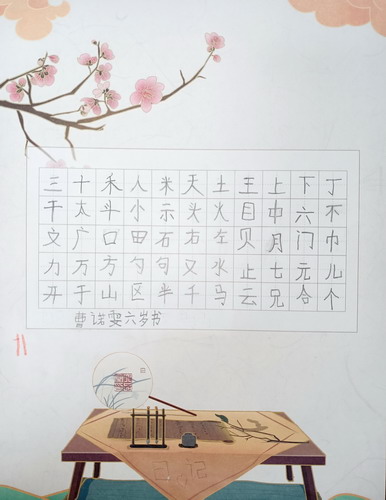 三十禾人米天土王上下丁
干太斗小示头火目中六不
文广口田石右左贝月门巾
力万方勺句又水止七元儿
开于山区半千马云兄合个
曹诺雯六岁书
日记